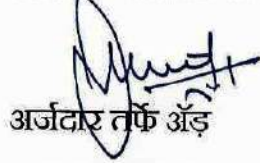 अर्जदार तर्फे ॲड